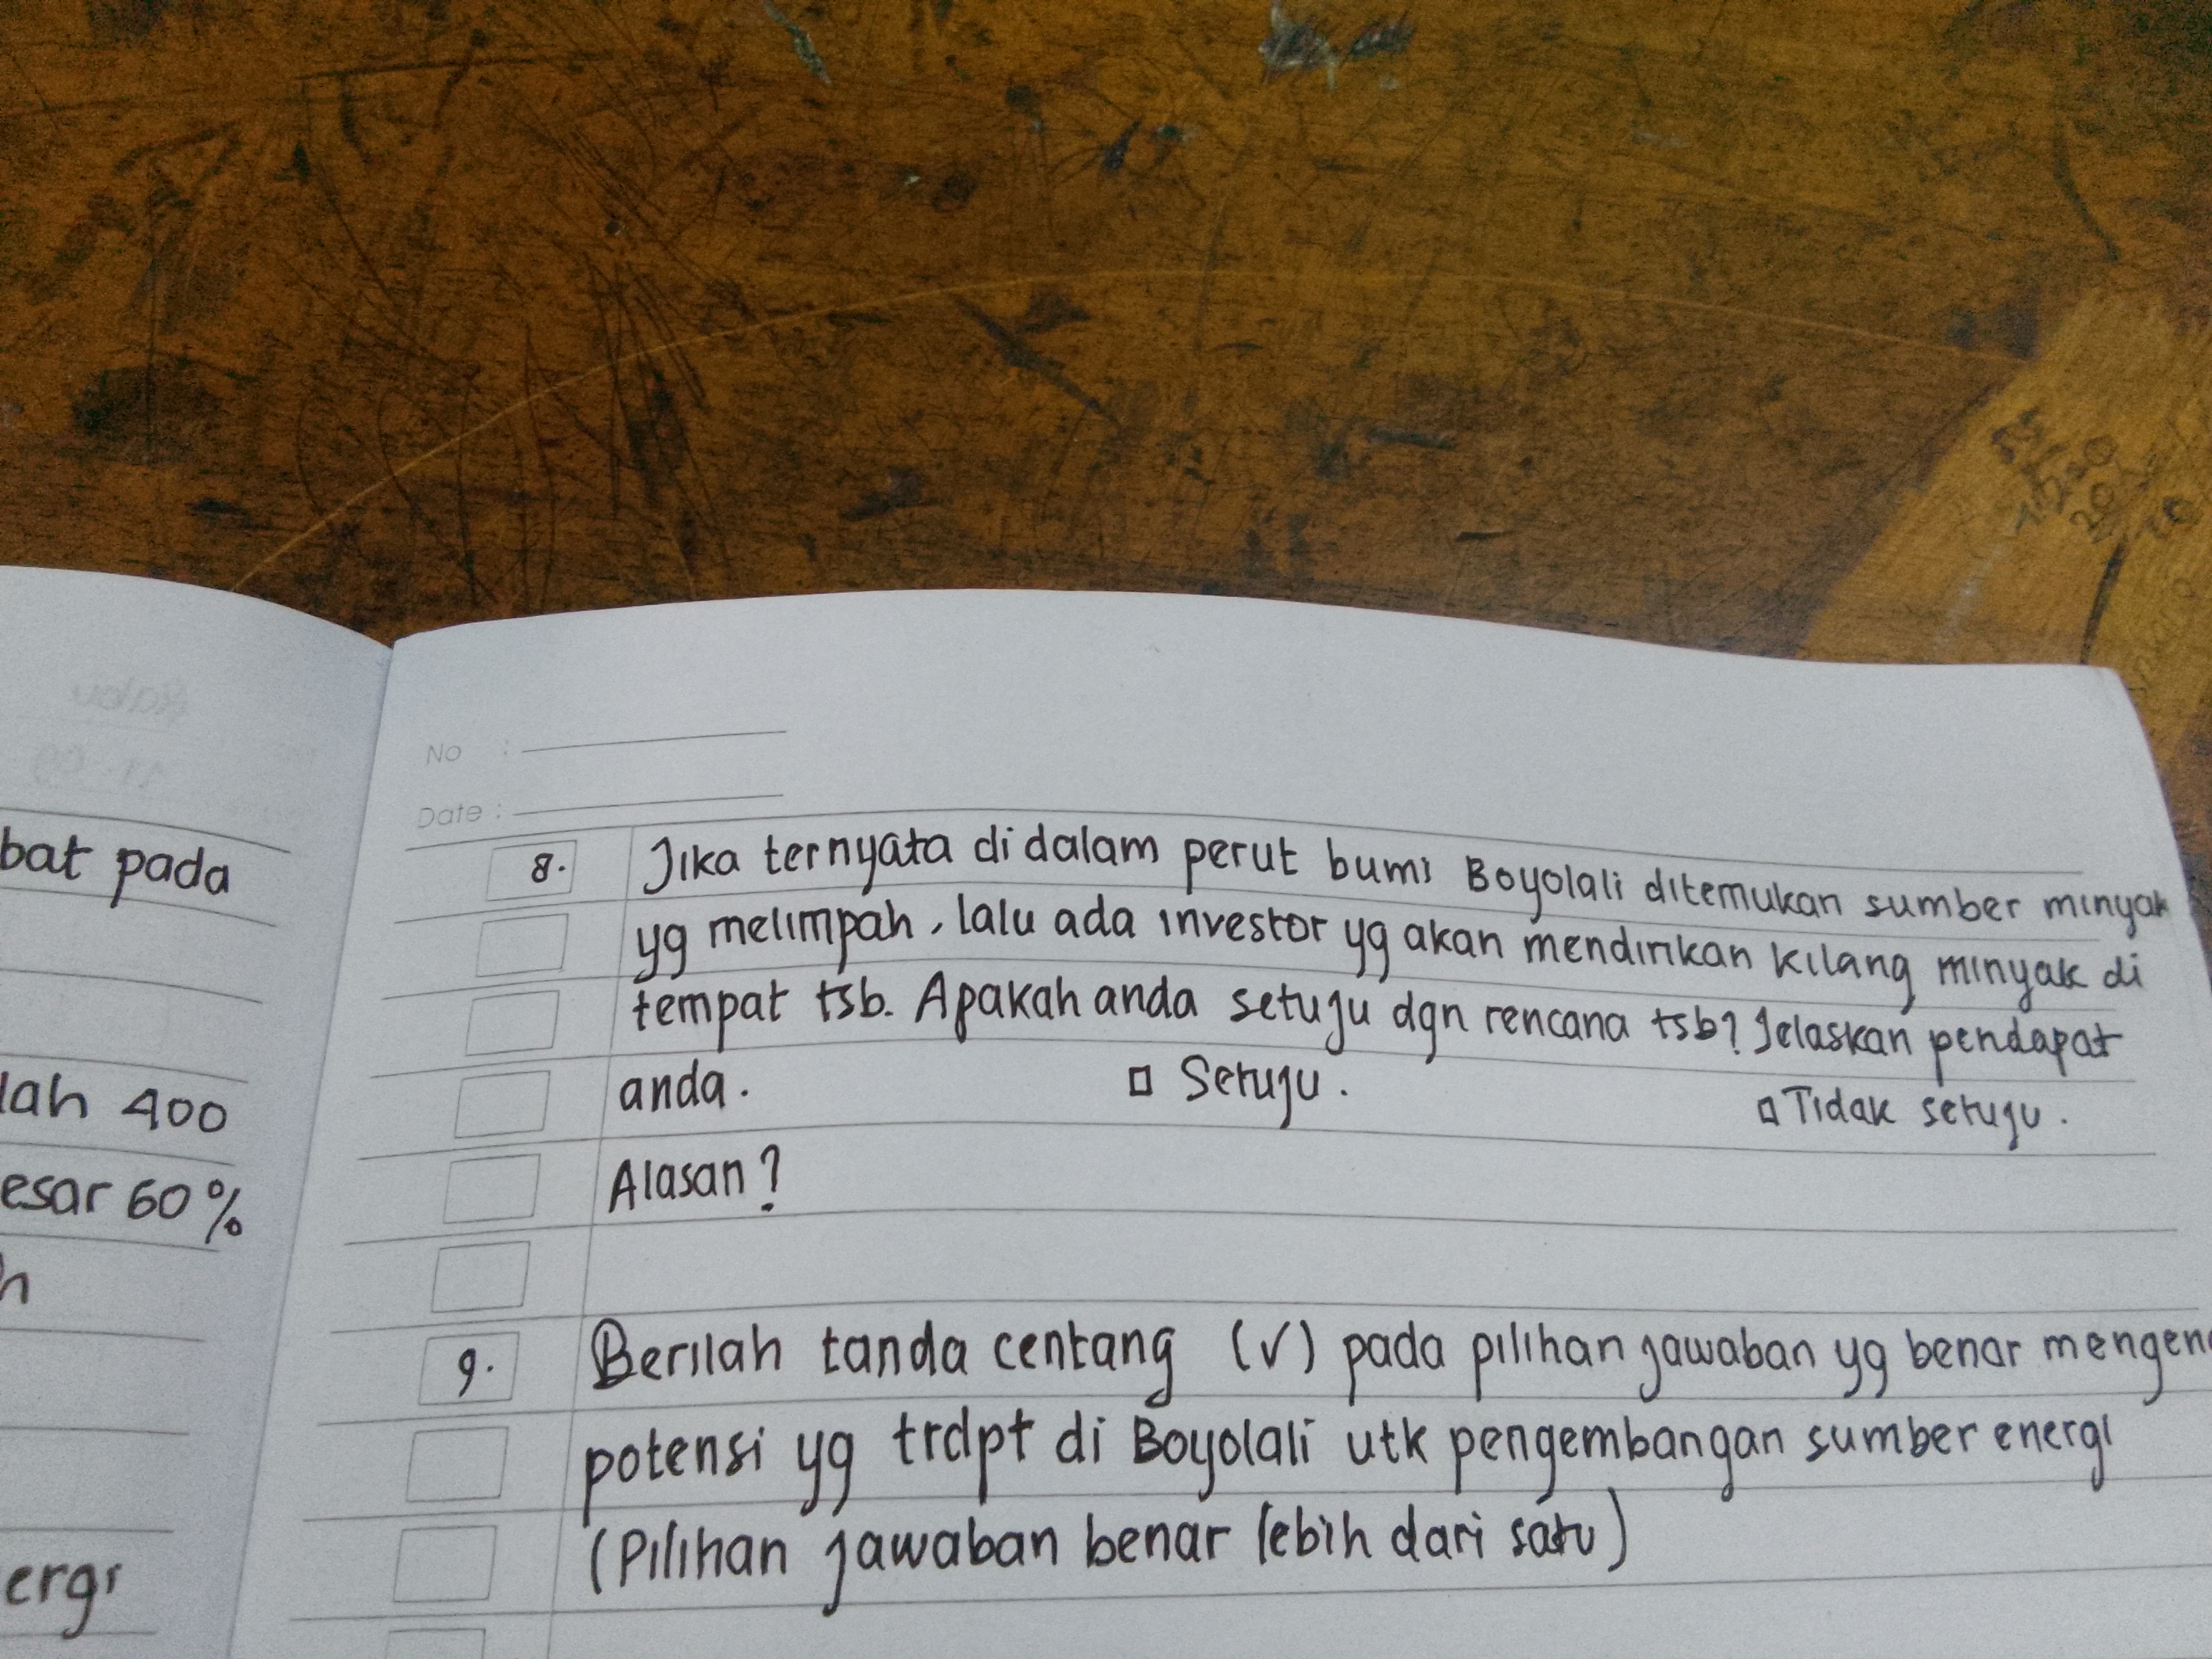 bat pada
lah 400
esar 60%
h
ergi
No :
Date :
8. Jika ternyata di dalam perut bumi Boyolali ditemukan sumber minyak
yg melimpah, lalu ada investor yg akan mendirikan kilang minyak di
tempat tsb. Apakah anda setuju dgn rencana tsb? Jelaskan pendapat
anda. □ Setuju. □ Tidak setuju.
Alasan?
9. Berilah tanda centang (√) pada pilihan jawaban yg benar mengen
potensi yg trdpt di Boyolali utk pengembangan sumber energi
(Pilihan jawaban benar lebih dari satu)